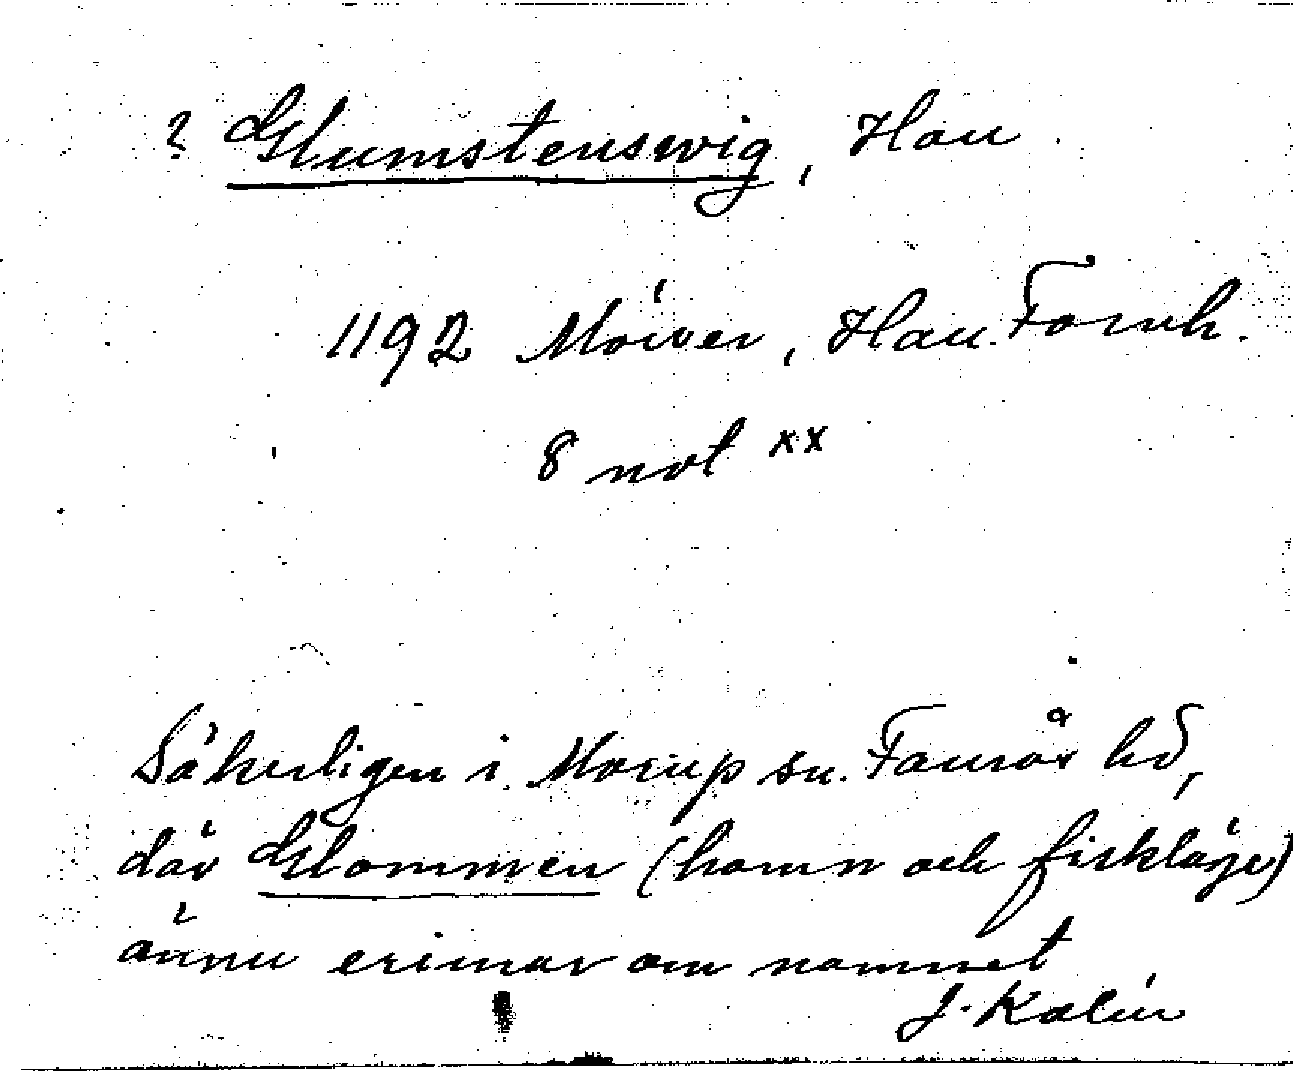 ? Glumstenswig, Han
1192 Möiver, Han. Fornh.
8 not xx
Säkerligen i Morup sn. Faurås hd,
där Glommen (hamn och fiskläge)
ännu erinrar om namnet
J. Kalén